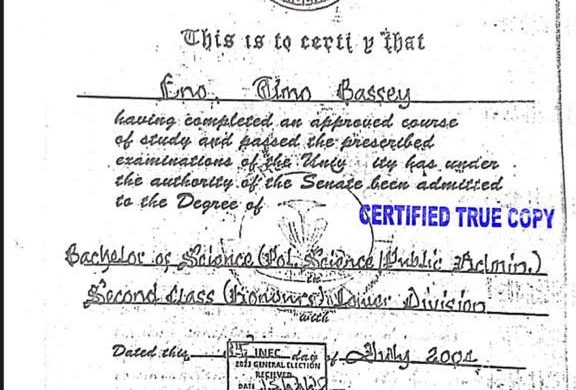 This is to certi y that
Eno, Bassey
having completed an approved course
of study and passed the prescribed
examinations of the Univ ity has under
the authority of the Senate been admitted
to the Degree of
CERTIFIED TRUE COPY
Bachelor of Science (Pol. Science/Public Admin.)
in
Second Class (Honours) Lower Division
with
Dated this day of July 2001
INEC
2023 GENERAL ELECTION
RECEIVED
DATE